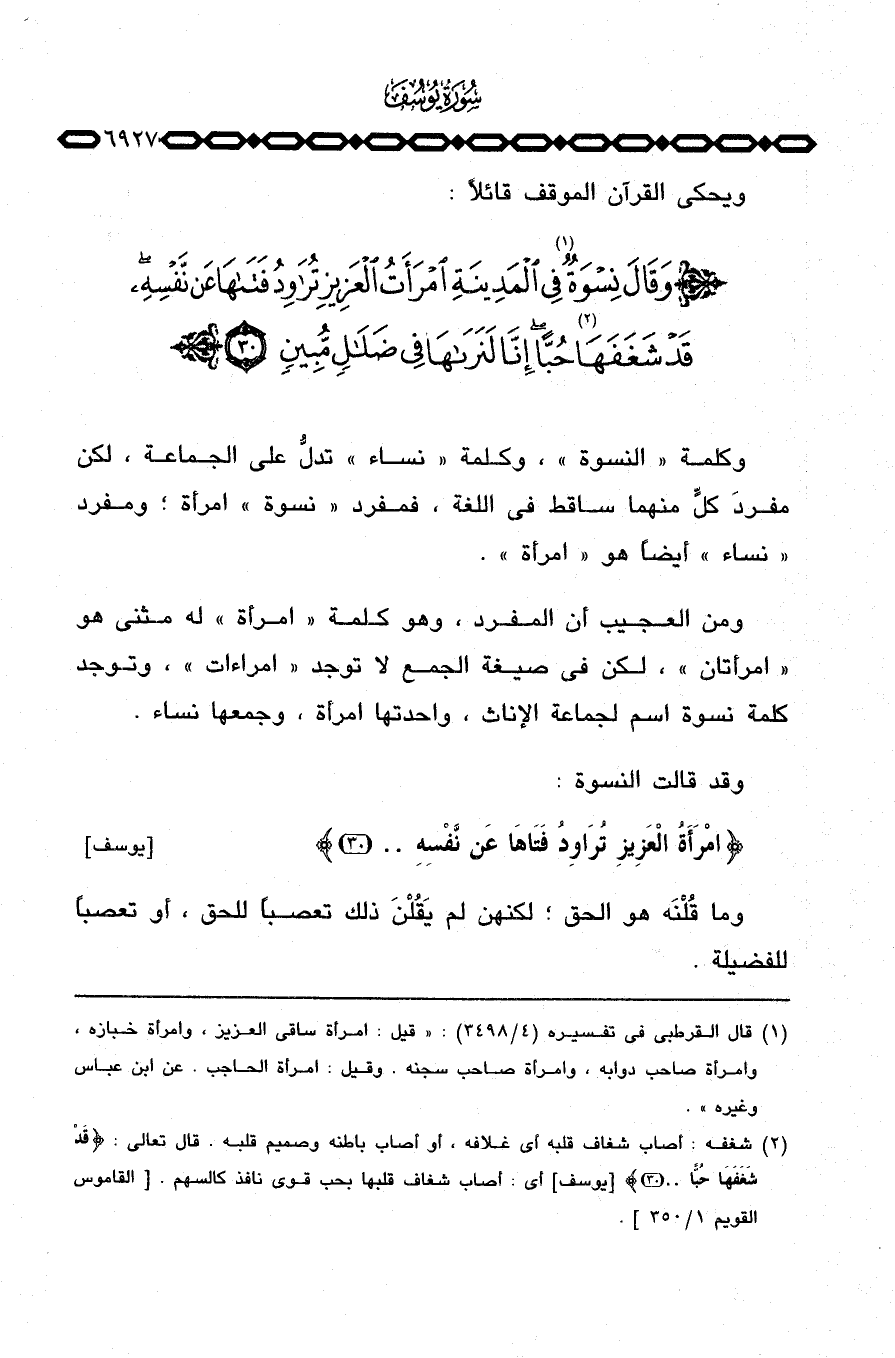 سُورَةُ يُوسُفَ
٦٩٢٧
ويحكى القرآن الموقف قائلاً :
وَقَالَ نِسْوَةٌ (١) فِى ٱلْمَدِينَةِ ٱمْرَأَتُ ٱلْعَزِيزِ تُرَٰوِدُ فَتَىٰهَا عَن نَّفْسِهِۦۖ
قَدْ شَغَفَهَا (٢) حُبًّاۖ إِنَّا لَنَرَىٰهَا فِى ضَلَٰلٍ مُّبِينٍ ٣٠
وكلمة « النسوة » ، وكلمة « نساء » تدلُّ على الجماعة ، لكن
مفردَ كلٍّ منهما ساقط فى اللغة ، فمفرد « نسوة » امرأة ؛ ومفرد
« نساء » أيضاً هو « امرأة » .
ومن العجيب أن المفرد ، وهو كلمة « امرأة » له مثنى هو
« امرأتان » ، لكن فى صيغة الجمع لا توجد « امراءات » ، وتوجد
كلمة نسوة اسم لجماعة الإناث ، واحدتها امرأة ، وجمعها نساء .
وقد قالت النسوة :
﴿ امْرَأَةُ الْعَزِيزِ تُرَاوِدُ فَتَاهَا عَن نَّفْسِهِ .. (٣٠) ﴾ [يوسف]
وما قُلْنَه هو الحق ؛ لكنهن لم يَقُلْنَ ذلك تعصباً للحق ، أو تعصباً
للفضيلة .
(١) قال القرطبى فى تفسيره (٣٤٩٨/٤) : « قيل : امرأة ساقى العزيز ، وامرأة خبازه ،
وامرأة صاحب دوابه ، وامرأة صاحب سجنه . وقيل : امرأة الحاجب . عن ابن عباس
وغيره » .
(٢) شغفه : أصاب شغاف قلبه أى غلافه ، أو أصاب باطنه وصميم قلبه . قال تعالى : ﴿ قَدْ
شَغَفَهَا حُبًّا .. (٣٠) ﴾ [يوسف] أى : أصاب شغاف قلبها بحب قوى نافذ كالسهم . [ القاموس
القويم ٣٥٠/١ ] .